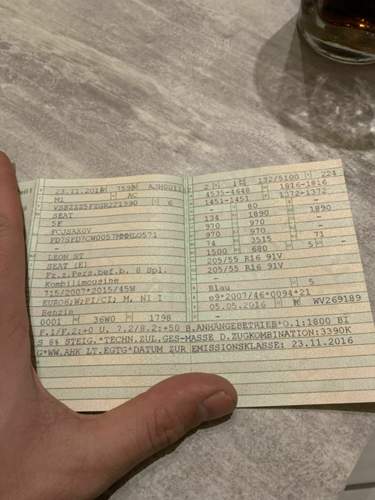 23.11.2016
M1 AC
6
SEAT
5F
FCJSAX0V
-
LEON ST
SEAT (E)
Fz.z.Pers.bef.b. 8 Spl.
Kombilimousine
715/2007*2015/45W
EURO6;W;PI/CI; M, N1 I
Benzin
0001 36W0 1798
2 1 132/5100 224
4535-4648 1816-1816
1451-1451 1372-1372
- 80 -
134 1890 1890
970 970 -
970 970 -
74 3515 71
1500 680 5 -
205/55 R16 91V
205/55 R16 91V
-
Blau 5
e9*2007/46*0094*21
05.05.2016 WV269189
F.1/F.2:+0 U. 7.2/8.2:+50 B.ANHÄNGEBETRIEB*O.1:1800 BI
S 8% STEIG.*TECHN.ZUL.GES-MASSE D.ZUGKOMBINATION:3390K
G*WW.AHK LT.EGTG*DATUM ZUR EMISSIONSKLASSE: 23.11.2016